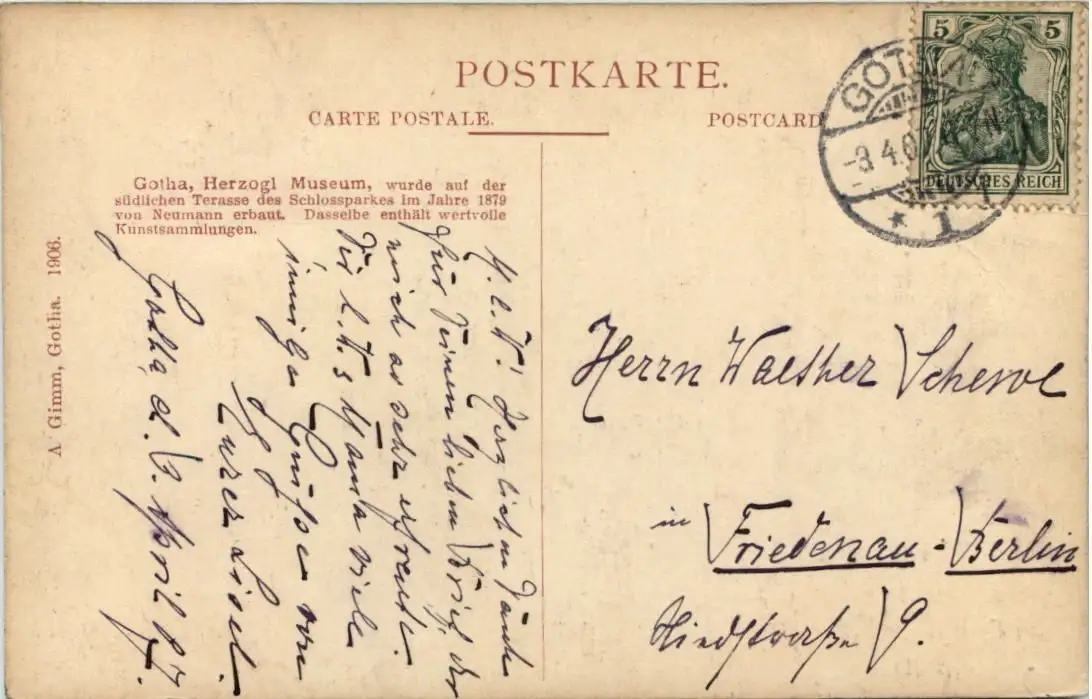 POSTKARTE.
CARTE POSTALE.
POSTCARD
5 5
DEUTSCHES REICH
GOTHA
-3.4.0
* 1
Gotha, Herzogl Museum, wurde auf der
südlichen Terasse des Schlossparkes im Jahre 1879
von Neumann erbaut. Dasselbe enthält wertvolle
Kunstsammlungen.
A Gimm, Gotha. 1906.
Gotha, d. 3. April 07.
M. l. W! Herzlichen Dank
für Deinen lieben Brief, der
mich so sehr erfreute.
Dir l. u. Mama viele
innige Grüße von
Eurer Liesel.
Herrn Walther Schewe
in Friedenau-Berlin
Niedstraße 9.